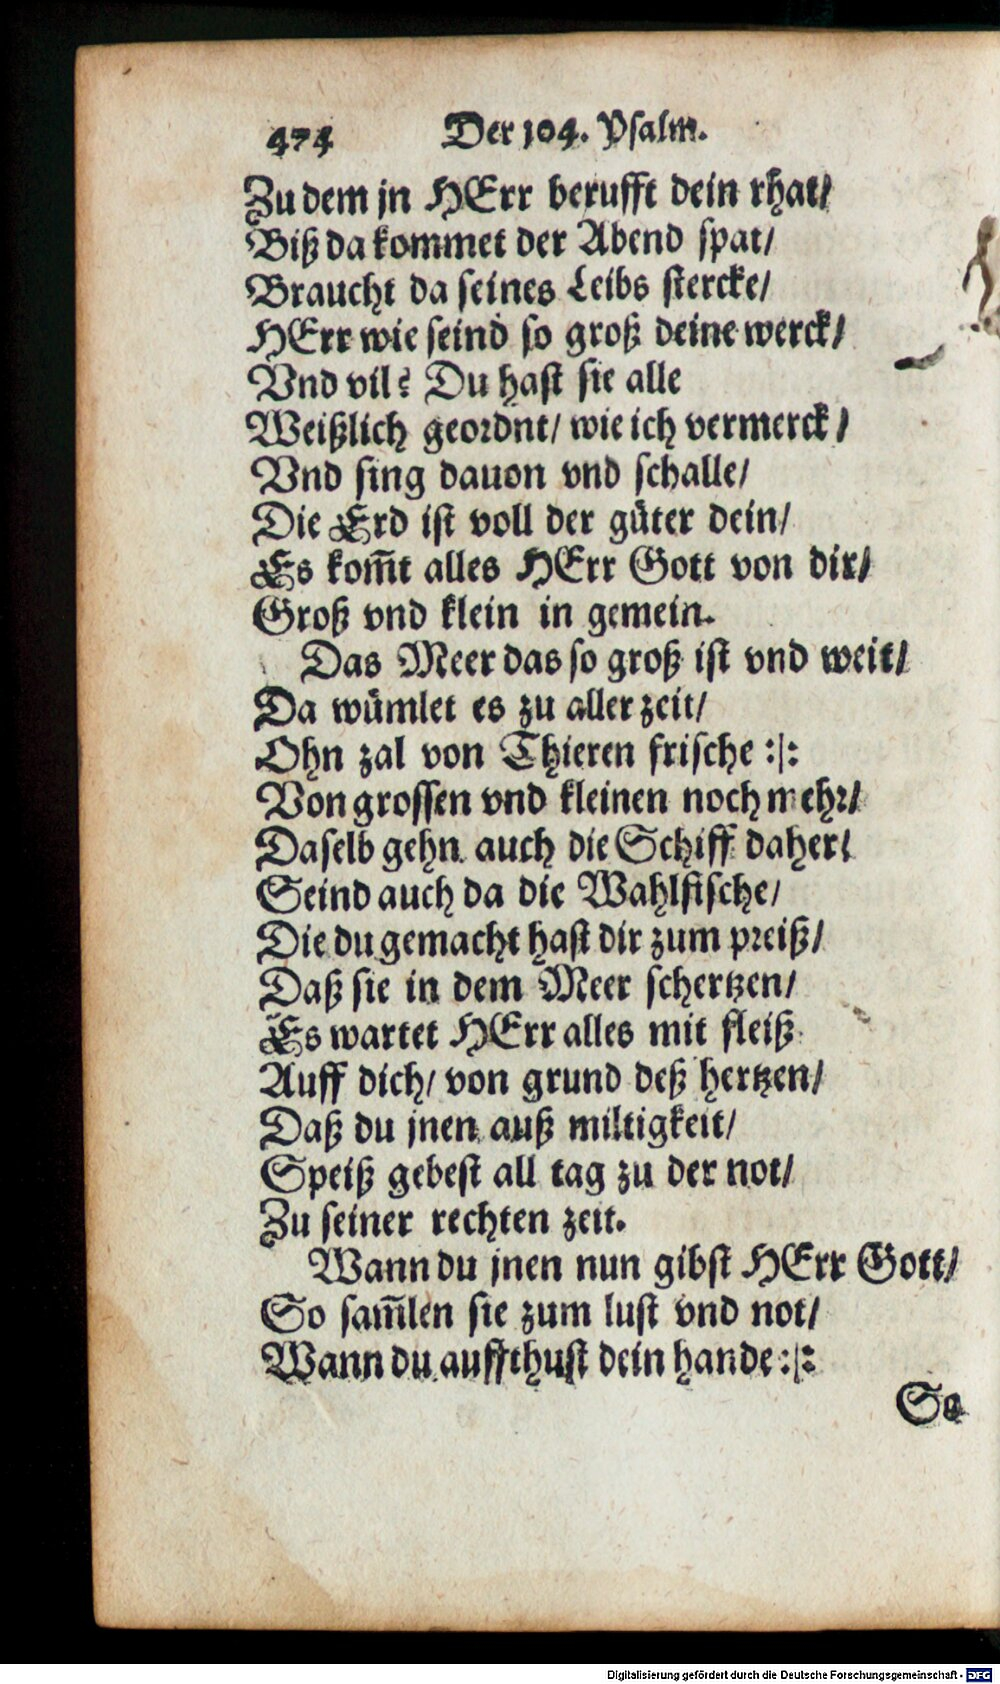 474 Der 104. Psalm.
Zu dem jn HErr berufft dein rhat/
Biß da kommet der Abend spat/
Braucht da seines Leibs stercke/
HErr wie seind so groß deine werck/
Vnd vil? Du hast sie alle
Weißlich geordnt/ wie ich vermerck/
Vnd sing dauon vnd schalle/
Die Erd ist voll der güter dein/
Es kom̃t alles HErr Gott von dir/
Groß vnd klein in gemein.
Das Meer das so groß ist vnd weit/
Da wümlet es zu aller zeit/
Ohn zal von Thieren frische :|:
Von grossen vnd kleinen noch mehr/
Daselb gehn auch die Schiff daher/
Seind auch da die Wahlfische/
Die du gemacht hast dir zum preiß/
Daß sie in dem Meer schertzen/
Es wartet HErr alles mit fleiß
Auff dich/ von grund deß hertzen/
Daß du jnen auß miltigkeit/
Speiß gebest all tag zu der not/
Zu seiner rechten zeit.
Wann du jnen nun gibst HErr Gott/
So sam̃len sie zum lust vnd not/
Wann du auffthust dein hande :|:
So
Digitalisierung gefördert durch die Deutsche Forschungsgemeinschaft - DFG